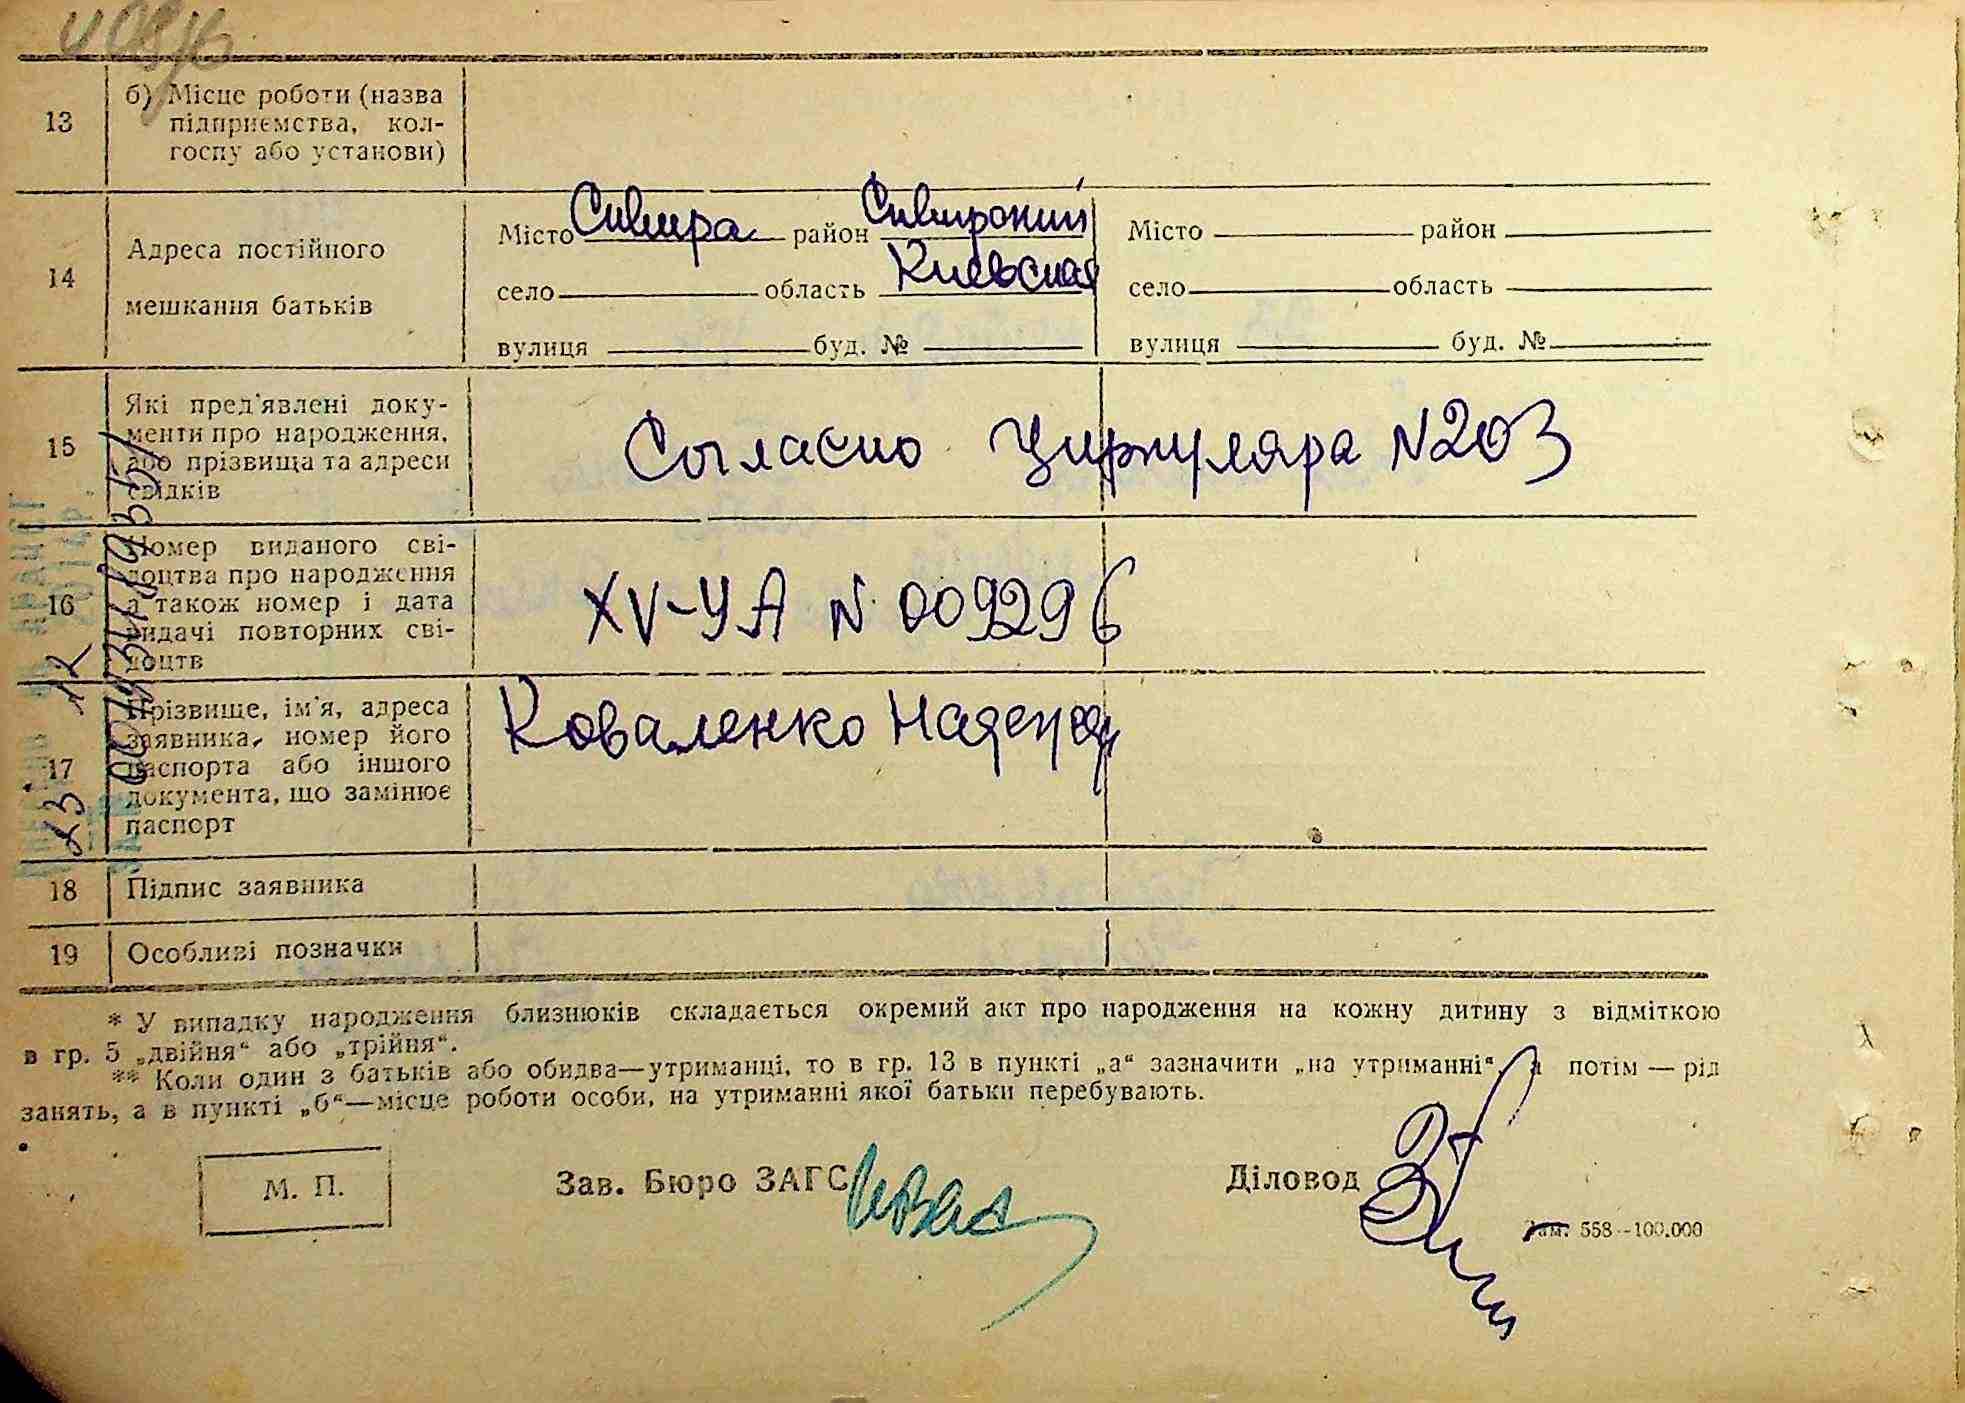 13
б) Місце роботи (назва
підприємства, кол-
госпу або установи)
14
Адреса постійного
мешкання батьків
Місто Сквира район Сквирский
село область Киевская
вулиця буд. №
Місто район
село область
вулиця буд. №
15
Які пред'явлені доку-
менти про народження,
або прізвища та адреси
свідків
Согласно Циркуляра N203
16
Номер виданого сві-
доцтва про народження
а також номер і дата
видачі повторних сві-
доцтв
XV-УА N 009296
17
Прізвище, ім'я, адреса
заявника, номер його
паспорта або іншого
документа, що замінює
паспорт
Коваленко Надежда
18
Підпис заявника
19
Особливі позначки
* У випадку народження близнюків складається окремий акт про народження на кожну дитину з відміткою
в гр. 5 „двійня“ або „трійня“.
** Коли один з батьків або обидва—утриманці, то в гр. 13 в пункті „а“ зазначити „на утриманні“, а потім — рід
занять, а в пункті „б“—місце роботи особи, на утриманні якої батьки перебувають.
М. П.
Зав. Бюро ЗАГС
Діловод
Зам. 558—100.000